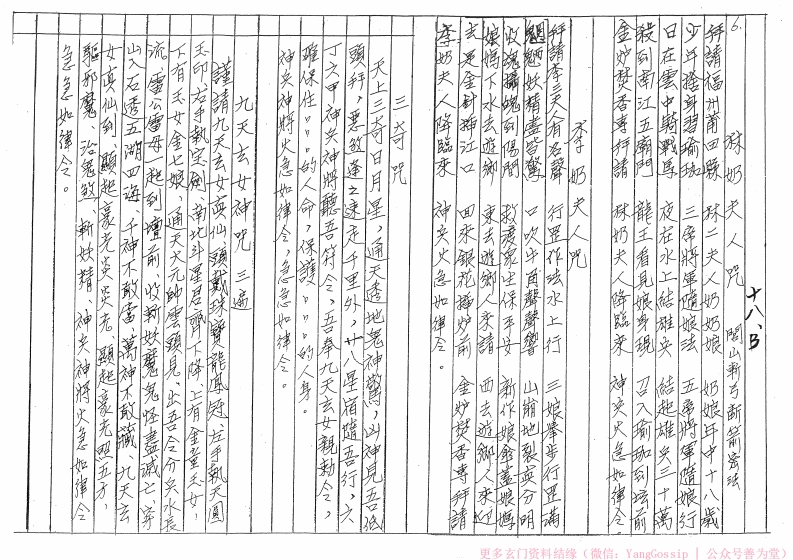 十八、B
閭山斬弓断箭宏法
6.
林奶夫人咒
拜請福州莆田縣 林二夫人奶奶娘 奶娘年中十八歲
少年捨身習瑜珈 三帝將軍隨娘法 五帝將軍隨娘行
日在雲中騎戰馬 夜在水上結雄兵 結起雄兵三十萬
殺到南江五廟門 龍王看見娘身現 召入瑜珈到坛前
金炉焚香專拜請 林奶夫人降臨來 神兵火急如律令。
李奶夫人咒
拜請李三夫人有名聲 行罡作法水上行 三娘舉步行罡滿
魍魎妖精盡皆驚 口吹牛角聲聲響 山崩地裂兵分明
收魂攝魄到陽間 救渡眾生保平安 新作娘傘蓋娘娘
娘媽下水去遊鄉 東去遊鄉人來請 西去遊鄉人來迎
去是金針插江口 回來銀花插炉前 金炉焚香專拜請
李奶夫人降臨來 神兵火急如律令。
三奇咒
天上三奇日月星，通天透地鬼神驚，凶神見吾低
頭拜，惡煞逢之速走千里外，廿八星宿隨吾行，六
丁六甲神兵神將聽吾符令，吾奉九天玄女親勅令，
確保住、、、的人命，保護、、、的人身。
神兵神將火急如律令，急急如律令。
九天玄女神咒 三遍
謹請九天玄女真仙，頭戴珠寶龍鳳冠、左手執天圓
玉印右手執宝劍，南北斗星君齊下降、上有金童玉女，
下有玉女金七娘，通天大元帥雲頭見、出吾令分兵水長
流，雷公雷母一起到壇前、收斬妖魔鬼怪盡滅亡、穿
山入石透五湖四海，千神不敢當，萬神不敢藏、九天玄
女真仙到、顯起豪光炎炎光，顯起豪光照五方，
驅邪魔、治鬼煞，斬妖精、神兵神將火急如律令
急急如律令。
更多玄门资料结缘（微信：YangGossip | 公众号善为堂）